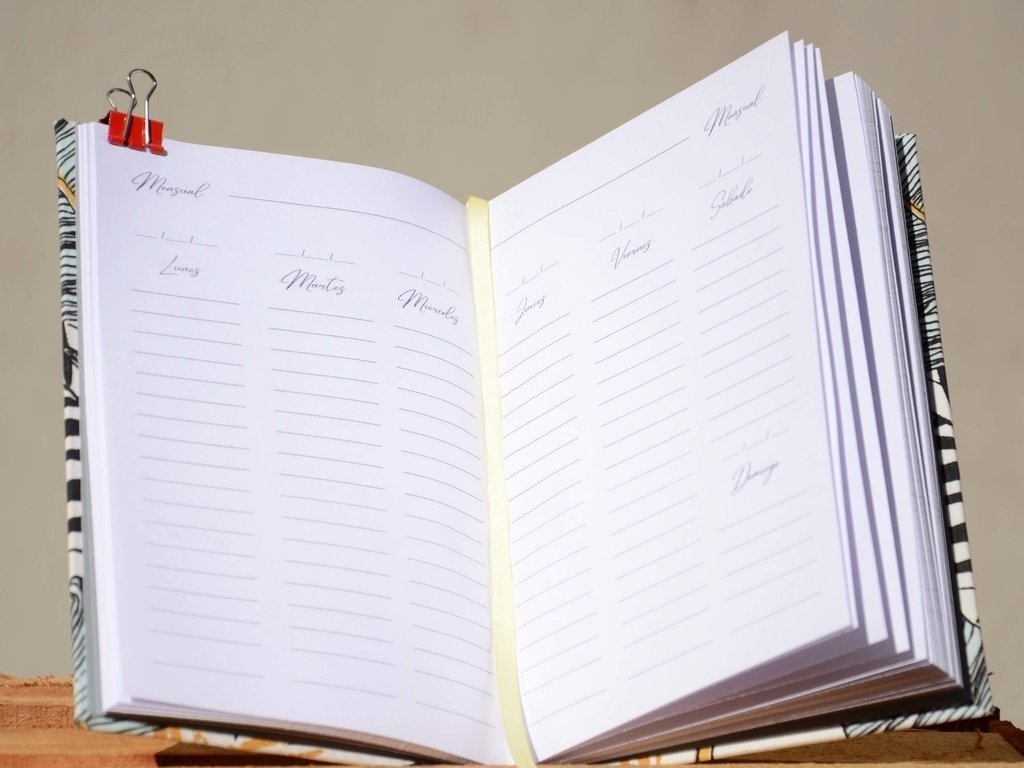 Mensual
Lunes
Martes
Miercoles
Mensual
Jueves
Viernes
Sabado
Domingo